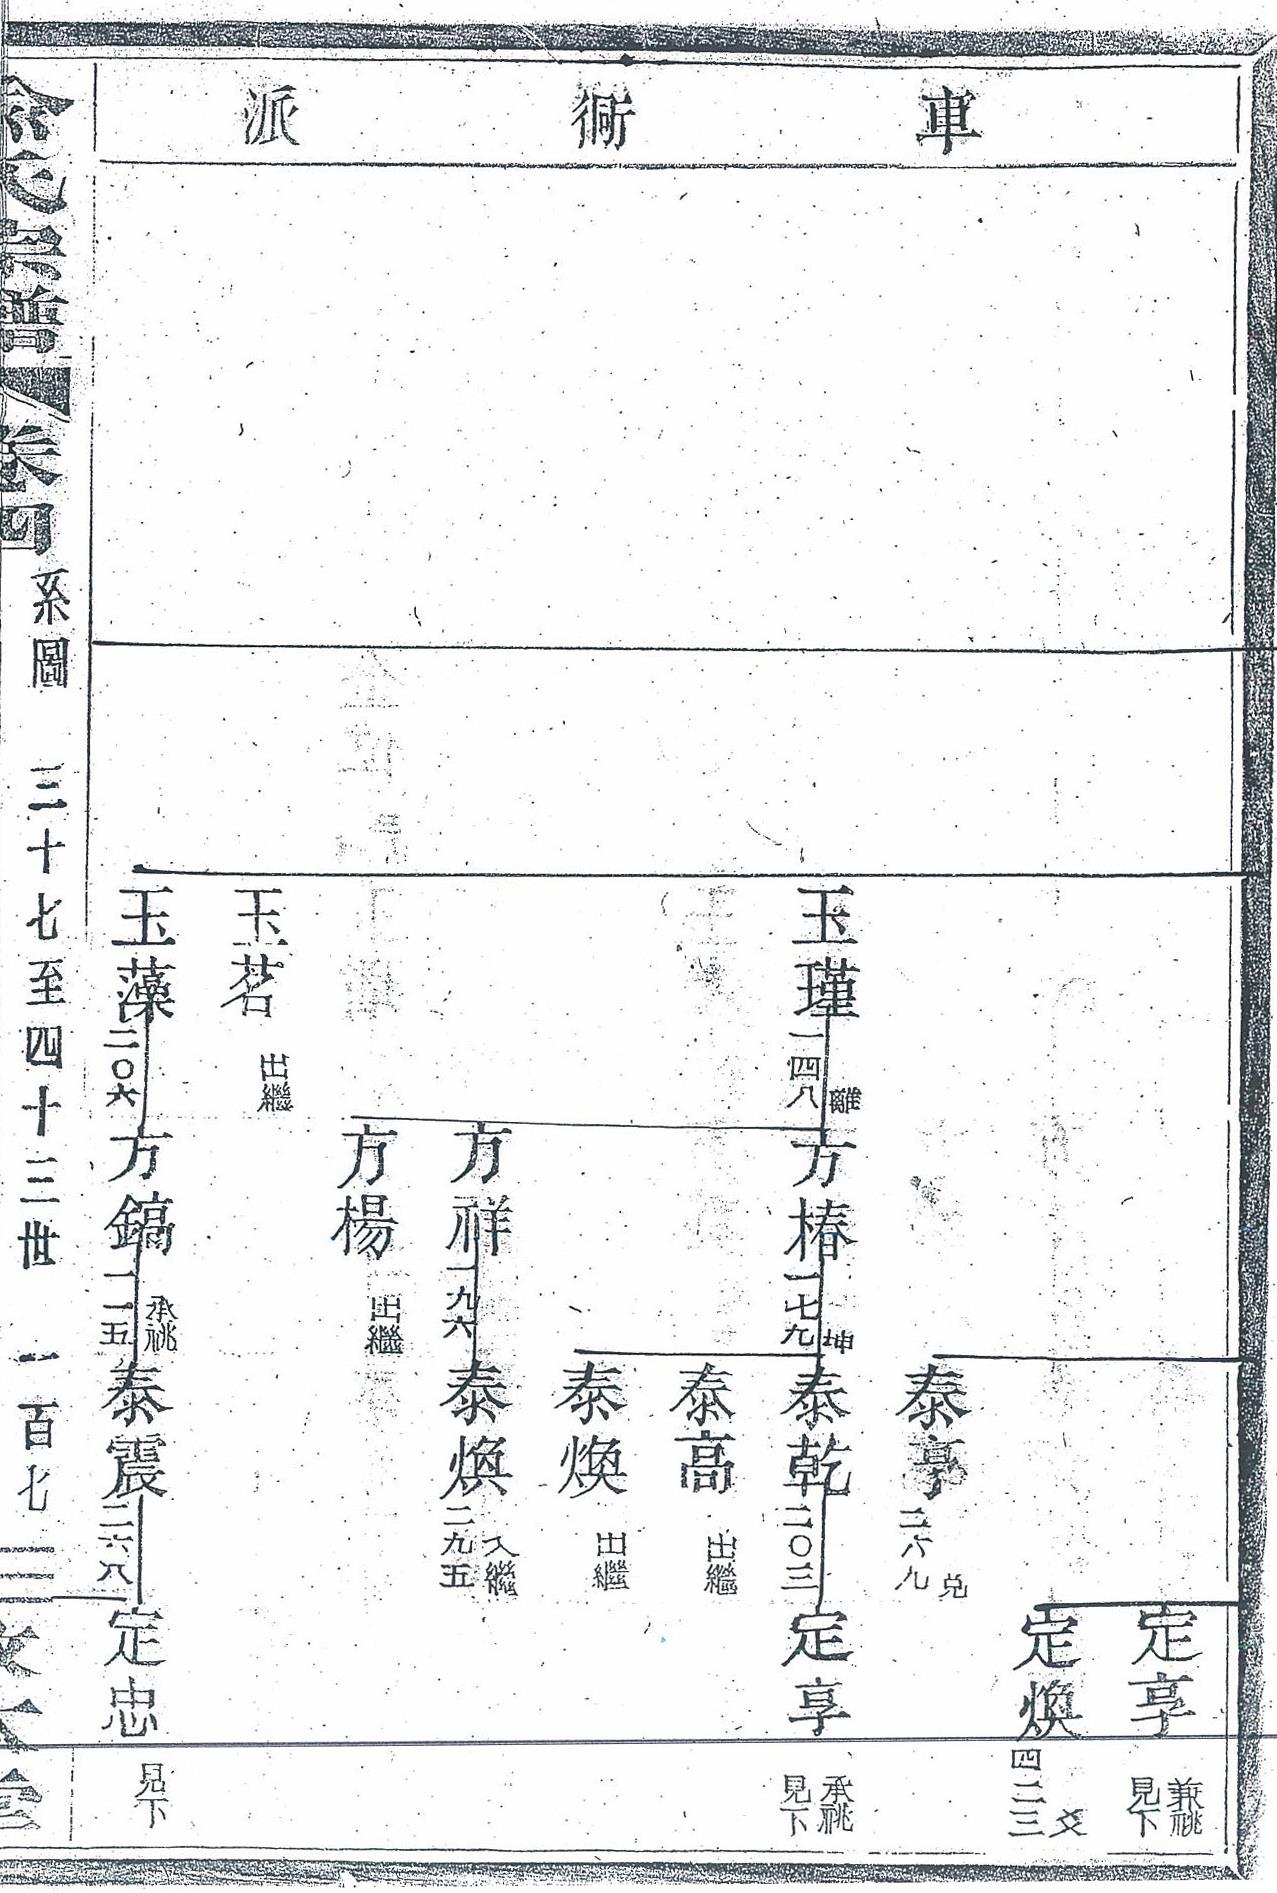 車衕派
定享
兼祧
見下
定煥
四二三
爻
泰亨
二六九
兌
玉瑾
一四八
離
方椿
一七九
坤
泰乾
二〇三
定享
承祧
見下
泰高
出繼
泰煥
出繼
方祥
一九六
泰煥
二九五
入繼
方楊
出繼
玉茗
出繼
玉藻
二〇六
方鎬
一一五
承祧
泰震
二六八
定忠
見下
氏宗譜 卷四
系圖 三十七至四十三世 一百七